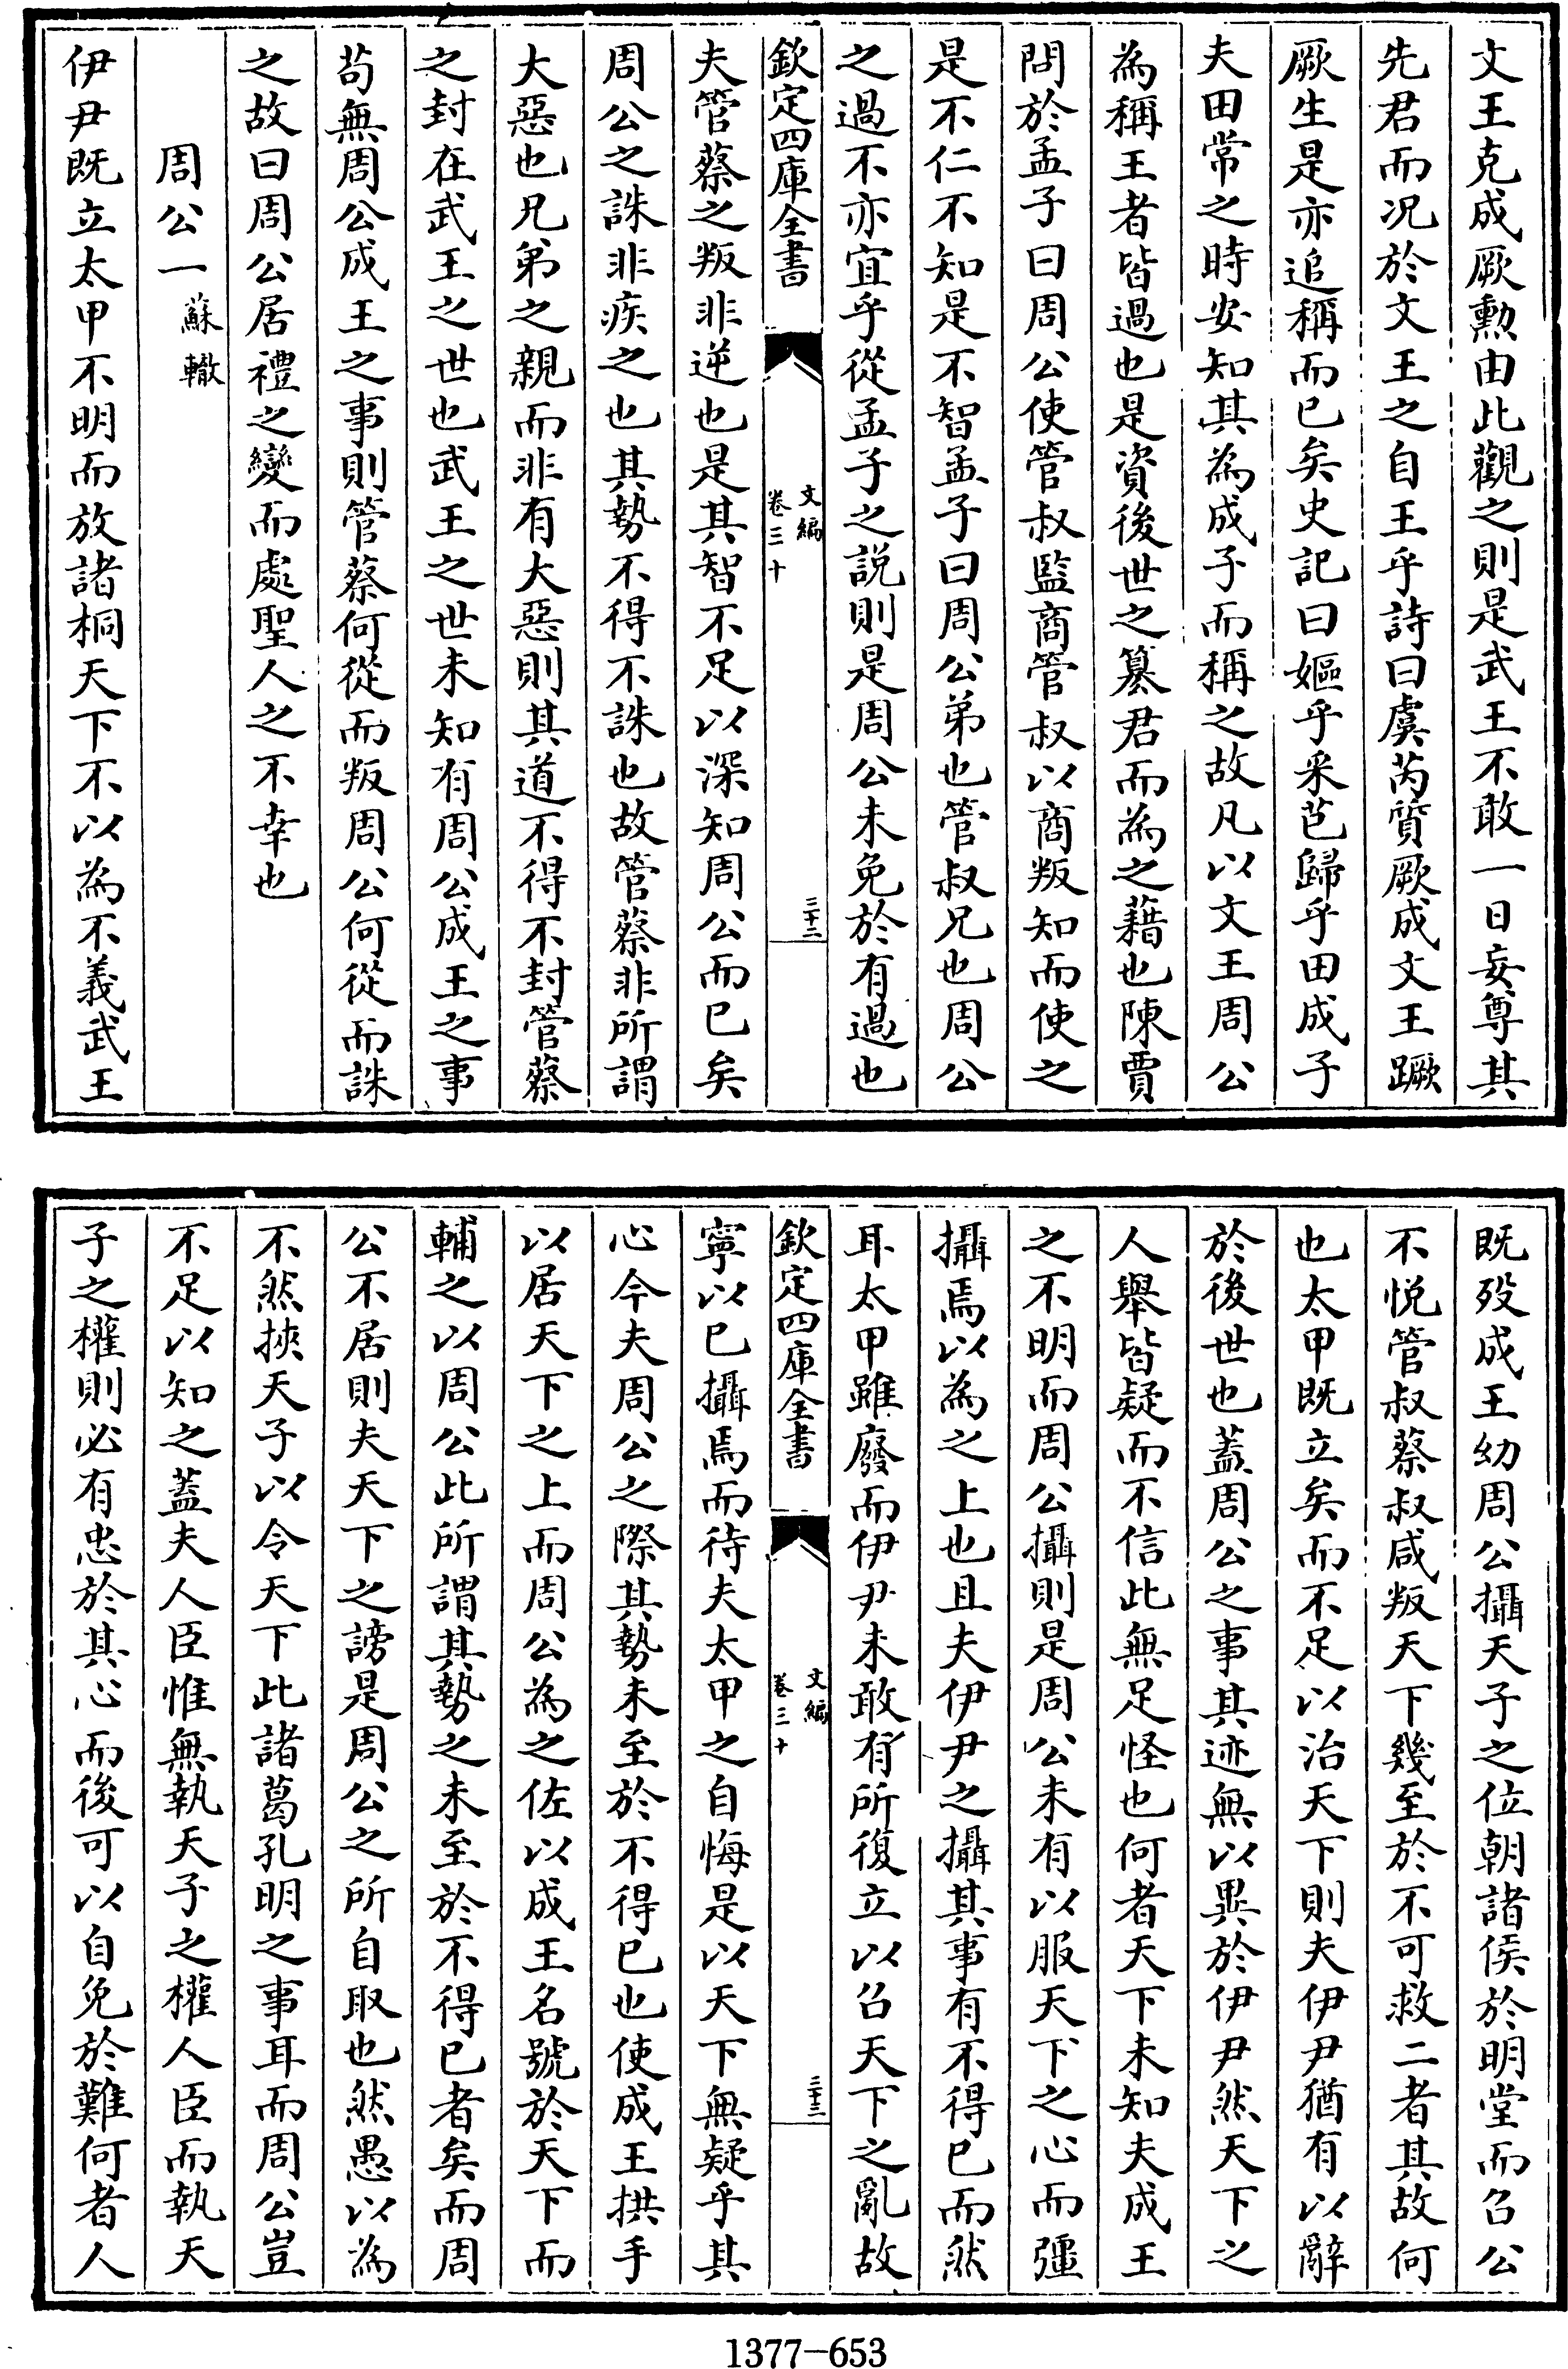 文王克成厥勲由此觀之則是武王不敢一日妄尊其
先君而况於文王之自王乎詩曰虞芮質厥成文王蹶
厥生是亦追稱而已矣史記曰嫗乎采芑歸乎田成子
夫田常之時安知其為成子而稱之故凡以文王周公
為稱王者皆過也是資後世之簒君而為之藉也陳賈
問於孟子曰周公使管叔監商管叔以商叛知而使之
是不仁不知是不智孟子曰周公弟也管叔兄也周公
之過不亦宜乎從孟子之説則是周公未免於有過也
欽定四庫全書
文編
卷三十
三十二
夫管蔡之叛非逆也是其智不足以深知周公而已矣
周公之誅非疾之也其勢不得不誅也故管蔡非所謂
大惡也兄弟之親而非有大惡則其道不得不封管蔡
之封在武王之世也武王之世未知有周公成王之事
苟無周公成王之事則管蔡何從而叛周公何從而誅
之故曰周公居禮之變而處聖人之不幸也
周公一蘇轍
伊尹既立太甲不明而放諸桐天下不以為不義武王
既歿成王幼周公攝天子之位朝諸侯於明堂而召公
不悦管叔蔡叔咸叛天下幾至於不可救二者其故何
也太甲既立矣而不足以治天下則夫伊尹猶有以辭
於後世也蓋周公之事其迹無以異於伊尹然天下之
人舉皆疑而不信此無足怪也何者天下未知夫成王
之不明而周公攝則是周公未有以服天下之心而彊
攝焉以為之上也且夫伊尹之攝其事有不得已而然
耳太甲雖廢而伊尹未敢有所復立以召天下之亂故
欽定四庫全書
文編
卷三十
三十三
寧以已攝焉而待夫太甲之自悔是以天下無疑乎其
心今夫周公之際其勢未至於不得已也使成王拱手
以居天下之上而周公為之佐以成王名號於天下而
輔之以周公此所謂其勢之未至於不得已者矣而周
公不居則夫天下之謗是周公之所自取也然愚以為
不然挾天子以令天下此諸葛孔明之事耳而周公豈
不足以知之蓋夫人臣惟無執天子之權人臣而執天
子之權則必有忠於其心而後可以自免於難何者人
1377-653